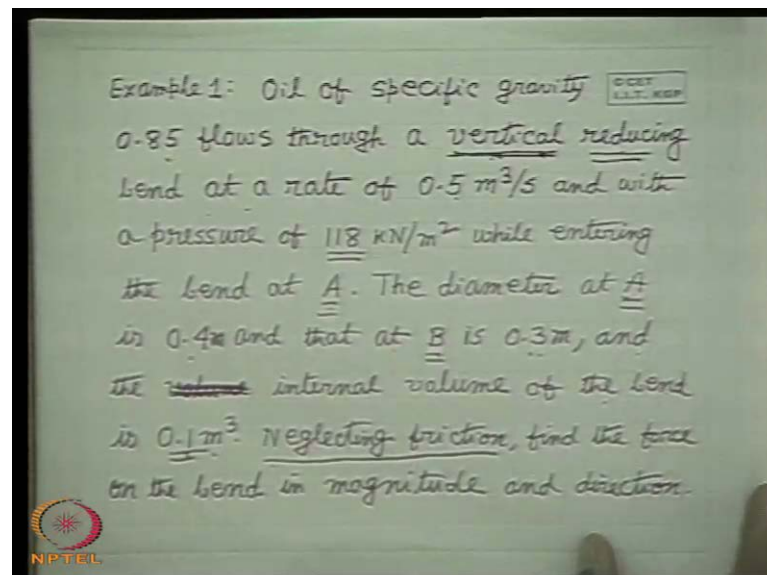 Example 1: Oil of specific gravity
C CET
I.I.T. KGP
0.85 flows through a vertical reducing
bend at a rate of 0.5 m³/s and with
a pressure of 118 KN/m² while entering
the bend at A. The diameter at A
is 0.4m and that at B is 0.3m, and
the internal volume of the bend
is 0.1m³. Neglecting friction, find the force
on the bend in magnitude and direction.
NPTEL